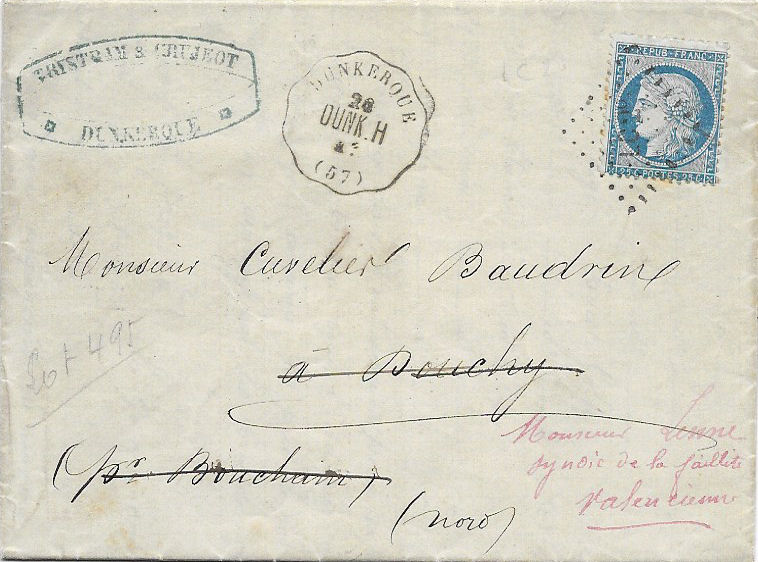 TRISTRAM & CRUJEOT
DUNKERQUE
DUNKERQUE
28
DUNK.H
(57)
REPUB. FRANC.
25 C. POSTES 25 C.
Monsieur Cuvelier Baudrin
à Douchy
(pr. Bouchain)
(Nord)
Lot 495
Monsieur Lenne
syndic de la faillite
Valencienne